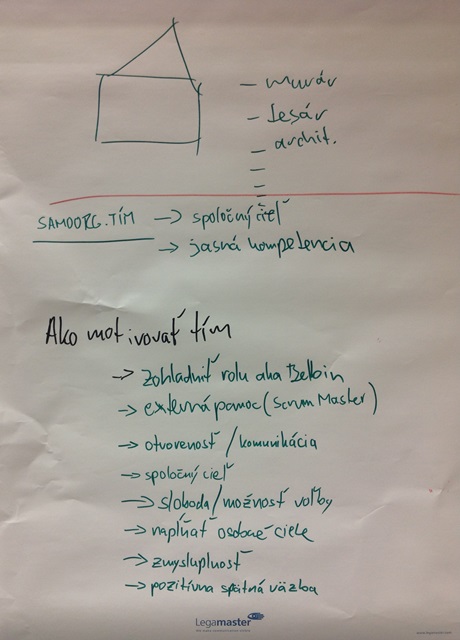 – murár
– tesár
– archit.
–
–
–
SAMOORG. TÍM → spoločný cieľ
→ jasná kompetencia
Ako motivovať tím
→ zohľadniť rolu aka Belbin
→ externá pomoc (Scrum Master)
→ otvorenosť / komunikácia
→ spoločný cieľ
→ sloboda / možnosť voľby
→ napĺňať osobné ciele
→ zmysluplnosť
→ pozitívna spätná väzba
Legamaster